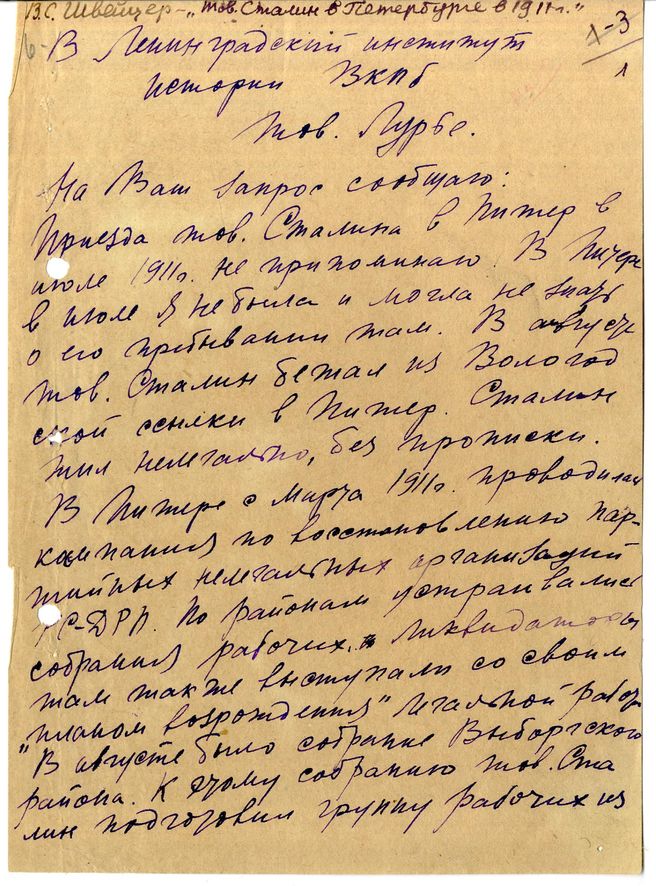 В.С. Швейцер – „Тов. Сталин в Петербурге в 1911 г."
1-3
1
6-
В Ленинградский институт
истории ВКПб
Тов. Лурье.
На Ваш запрос сообщаю:
Приезда тов. Сталина в Питер в
июле 1911 г. не припоминаю. В Питере
в июле я не была и могла не знать
о его пребывании там. В августе
тов. Сталин бежал из Вологод
ской ссылки в Питер. Сталин
жил нелегально, без прописки.
В Питере с марта 1911 г. проводилась
кампания по восстановлению пар-
тийных нелегальных организаций
РС-ДРП. По районам устраивались
собрания рабочих, ликвидаторы
там также выступали со своим
"планом возрождения" легальной работы
В августе было собрание Выборгского
района. К этому собранию тов. Ста
лин подготовил группу рабочих из